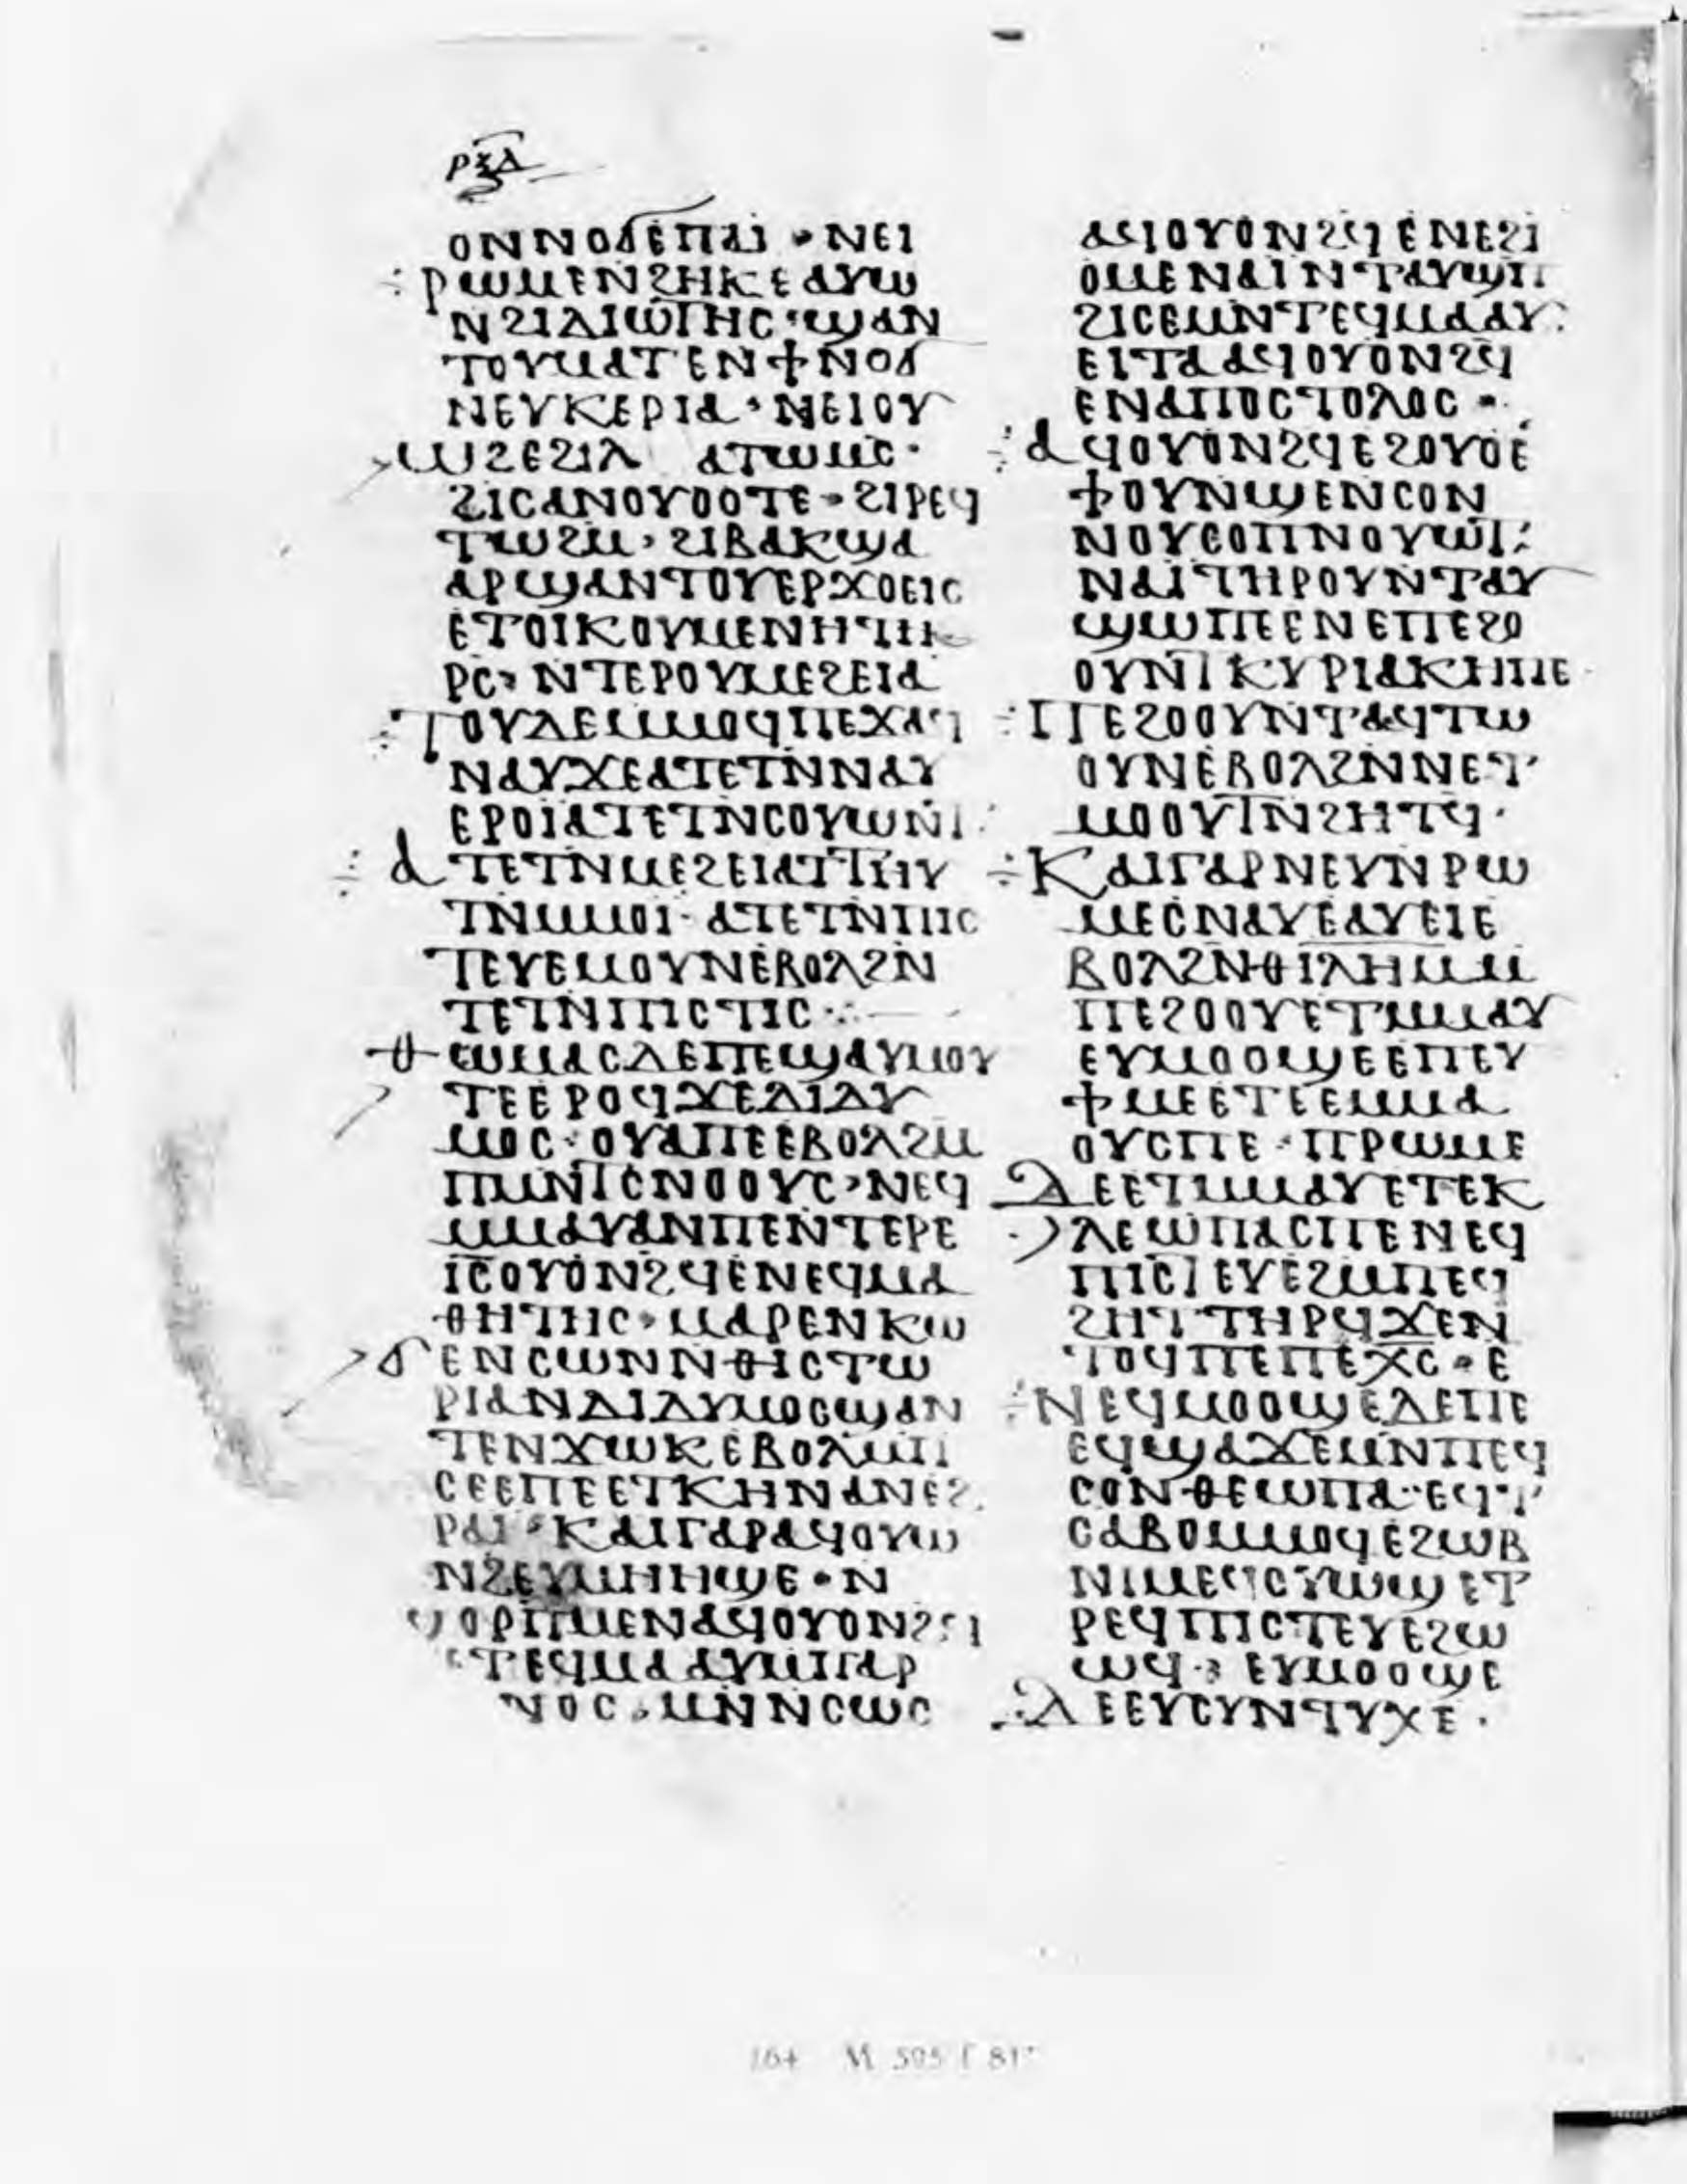 ⲣⲝⲇ
ⲟⲛⲛⲟϭⲉⲡⲁⲓ · ⲛⲉⲓ
ⲣⲱⲙⲉⲛϩⲏⲕⲉⲁⲩⲱ
ⲛϩⲓⲇⲓⲱⲧⲏⲥ · ϣⲁⲛ
ⲧⲟⲩⲙⲁⲧⲉⲛϯⲛⲟϭ
ⲛⲉⲩⲕⲉⲣⲓⲁ · ⲛⲉⲓⲟⲩ
ⲱϩⲉϩⲓⲗ ⲁⲧⲱⲙⲥ ·
ϩⲓⲥⲁⲛⲟⲩⲟⲟⲧⲉ · ϩⲓⲣⲉϥ
ⲧⲱϩⲙ · ϩⲓⲃⲁⲕϣⲁ
ⲁⲣϣⲁⲛⲧⲟⲩⲉⲣϫⲟⲉⲓⲥ
ⲉⲧⲟⲓⲕⲟⲩⲙⲉⲛⲏⲧⲏ
ⲣⲥ · ⲛⲧⲉⲣⲟⲩⲙⲉϩⲉⲓⲁ
ⲧⲟⲩⲇⲉⲙⲙⲟϥⲡⲉϫⲁϥ
ⲛⲁⲩϫⲉⲁⲧⲉⲧⲛⲛⲁⲩ
ⲉⲣⲟⲓⲁⲧⲉⲧⲛⲥⲟⲩⲱⲛⲧ
ⲁⲧⲉⲧⲛⲙⲉϩⲉⲓⲁⲧⲧⲏⲩ
ⲧⲛⲙⲙⲟⲓ · ⲁⲧⲉⲧⲛⲡⲓⲥ
ⲧⲉⲩⲉⲙⲟⲩⲛⲉⲃⲟⲗϩⲛ
ⲧⲉⲧⲛⲡⲓⲥⲧⲓⲥ ·
ⲑⲱⲙⲁⲥⲇⲉⲡⲉϣⲁⲩⲙⲟⲩ
ⲧⲉⲉⲣⲟϥϫⲉⲇⲓⲇⲩ
ⲙⲟⲥ · ⲟⲩⲁⲡⲉⲉⲃⲟⲗϩⲙ
ⲡⲙⲛⲧⲥⲛⲟⲟⲩⲥ · ⲛⲉϥ
ⲙⲙⲁⲩⲁⲛⲡⲉⲛⲧⲉⲣⲉ
ⲓⲥⲟⲩⲟⲛϩϥⲉⲛⲉϥⲙⲁ
ⲑⲏⲧⲏⲥ · ⲙⲁⲣⲉⲛⲕⲱ
ϭⲉⲛⲥⲱⲛⲛⲑⲓⲥⲧⲱ
ⲣⲓⲁⲛⲇⲓⲇⲩⲙⲟⲥϣⲁⲛ
ⲧⲉⲛϫⲱⲕⲉⲃⲟⲗⲙⲡ
ⲥⲉⲉⲡⲉⲉⲧⲕⲏⲛⲁⲛⲉϩ
ⲣⲁⲓ · ⲕⲁⲓⲅⲁⲣⲁϥⲟⲩⲱ
ⲛϩⲉⲩⲙⲏⲏϣⲉ · ⲛ
ϣⲟⲣⲡⲙⲉⲛⲁϥⲟⲩⲟⲛϩϥ
ⲉⲧⲉϥⲙⲁⲁⲩⲙⲡⲁⲣ
ⲛⲟⲥ · ⲙⲛⲛⲥⲱⲥ
ⲁϥⲟⲩⲟⲛϩϥⲉⲛⲉϩⲓ
ⲟⲙⲉⲛⲁⲓⲛⲧⲁⲩϣⲡ
ϩⲓⲥⲉⲙⲛⲧⲉϥⲙⲁⲁⲩ ·
ⲉⲓⲧⲁⲁϥⲟⲩⲟⲛϩϥ
ⲉⲛⲁⲡⲟⲥⲧⲟⲗⲟⲥ ·
ⲁϥⲟⲩⲟⲛϩϥⲉϩⲟⲩⲟⲉ
ϯⲟⲩⲛϣⲉⲛⲥⲟⲛ
ⲛⲟⲩⲥⲟⲡⲛⲟⲩⲱⲧ ·
ⲛⲁⲓⲧⲏⲣⲟⲩⲛⲧⲁⲩ
ϣⲱⲡⲉⲉⲛⲉⲡⲉϩⲟ
ⲟⲩⲛⲧⲕⲩⲣⲓⲁⲕⲏⲡⲉ
ⲡⲉϩⲟⲟⲩⲛⲧⲁϥⲧⲱ
ⲟⲩⲛⲉⲃⲟⲗϩⲛⲛⲉⲧ
ⲙⲟⲟⲩⲧⲛϩⲏⲧϥ ·
ⲕⲁⲓⲅⲁⲣⲛⲉⲩⲛⲣⲱ
ⲙⲉⲥⲛⲁⲩⲉⲁⲩⲉⲓⲉ
ⲃⲟⲗϩⲛⲑⲓⲗⲏⲙⲙ
ⲡⲉϩⲟⲟⲩⲉⲧⲙⲙⲁⲩ
ⲉⲩⲙⲟⲟϣⲉⲉⲡⲉⲩ
ϯⲙⲉⲉⲧⲉⲉⲙⲙⲁ
ⲟⲩⲥⲡⲉ · ⲡⲣⲱⲙⲉ
ⲇⲉⲉⲧⲙⲙⲁⲩⲉⲧⲉⲕ
ⲗⲉⲱⲡⲁⲥⲡⲉⲛⲉϥ
ⲡⲓⲥⲧⲉⲩⲉϩⲙⲡⲉϥ
ϩⲏⲧⲧⲏⲣϥϫⲉⲛ
ⲧⲟϥⲡⲉⲡⲉⲭⲥ · ⲉ
ⲛⲉϥⲙⲟⲟϣⲉⲇⲉⲡⲉ
ⲉϥϣⲁϫⲉⲙⲛⲡⲉϥ
ⲥⲟⲛⲑⲉⲱⲡⲁ · ⲉϥⲧ
ⲥⲁⲃⲟⲙⲙⲟϥⲉϩⲱⲃ
ⲛⲓⲙⲉϥⲥⲩⲱϣⲉⲧ
ⲣⲉϥⲡⲓⲥⲧⲉⲩⲉϩⲱ
ⲱϥ · ⲉⲩⲙⲟⲟϣⲉ
ⲇⲉⲉⲩⲥⲩⲛⲧⲩⲭⲉ ·